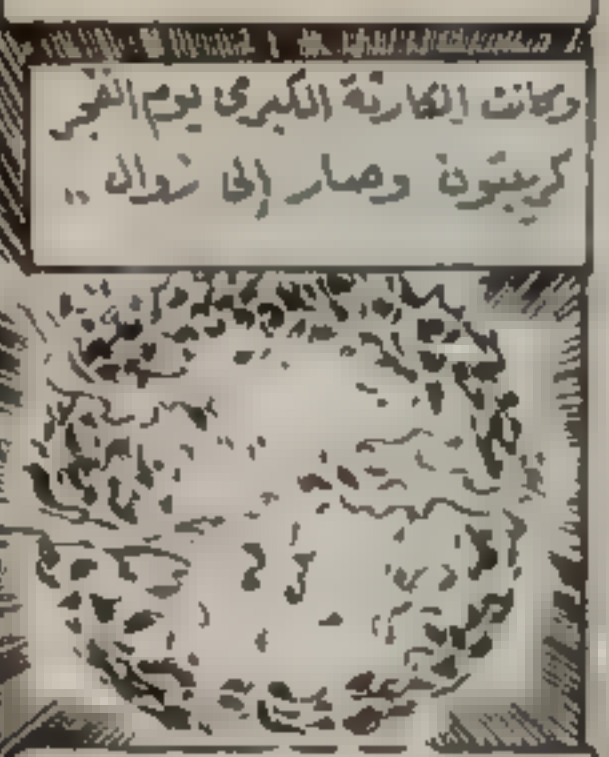 وكانت الكارثة الكبرى يوم انفجر
كريبتون وصار إلى زوال ..